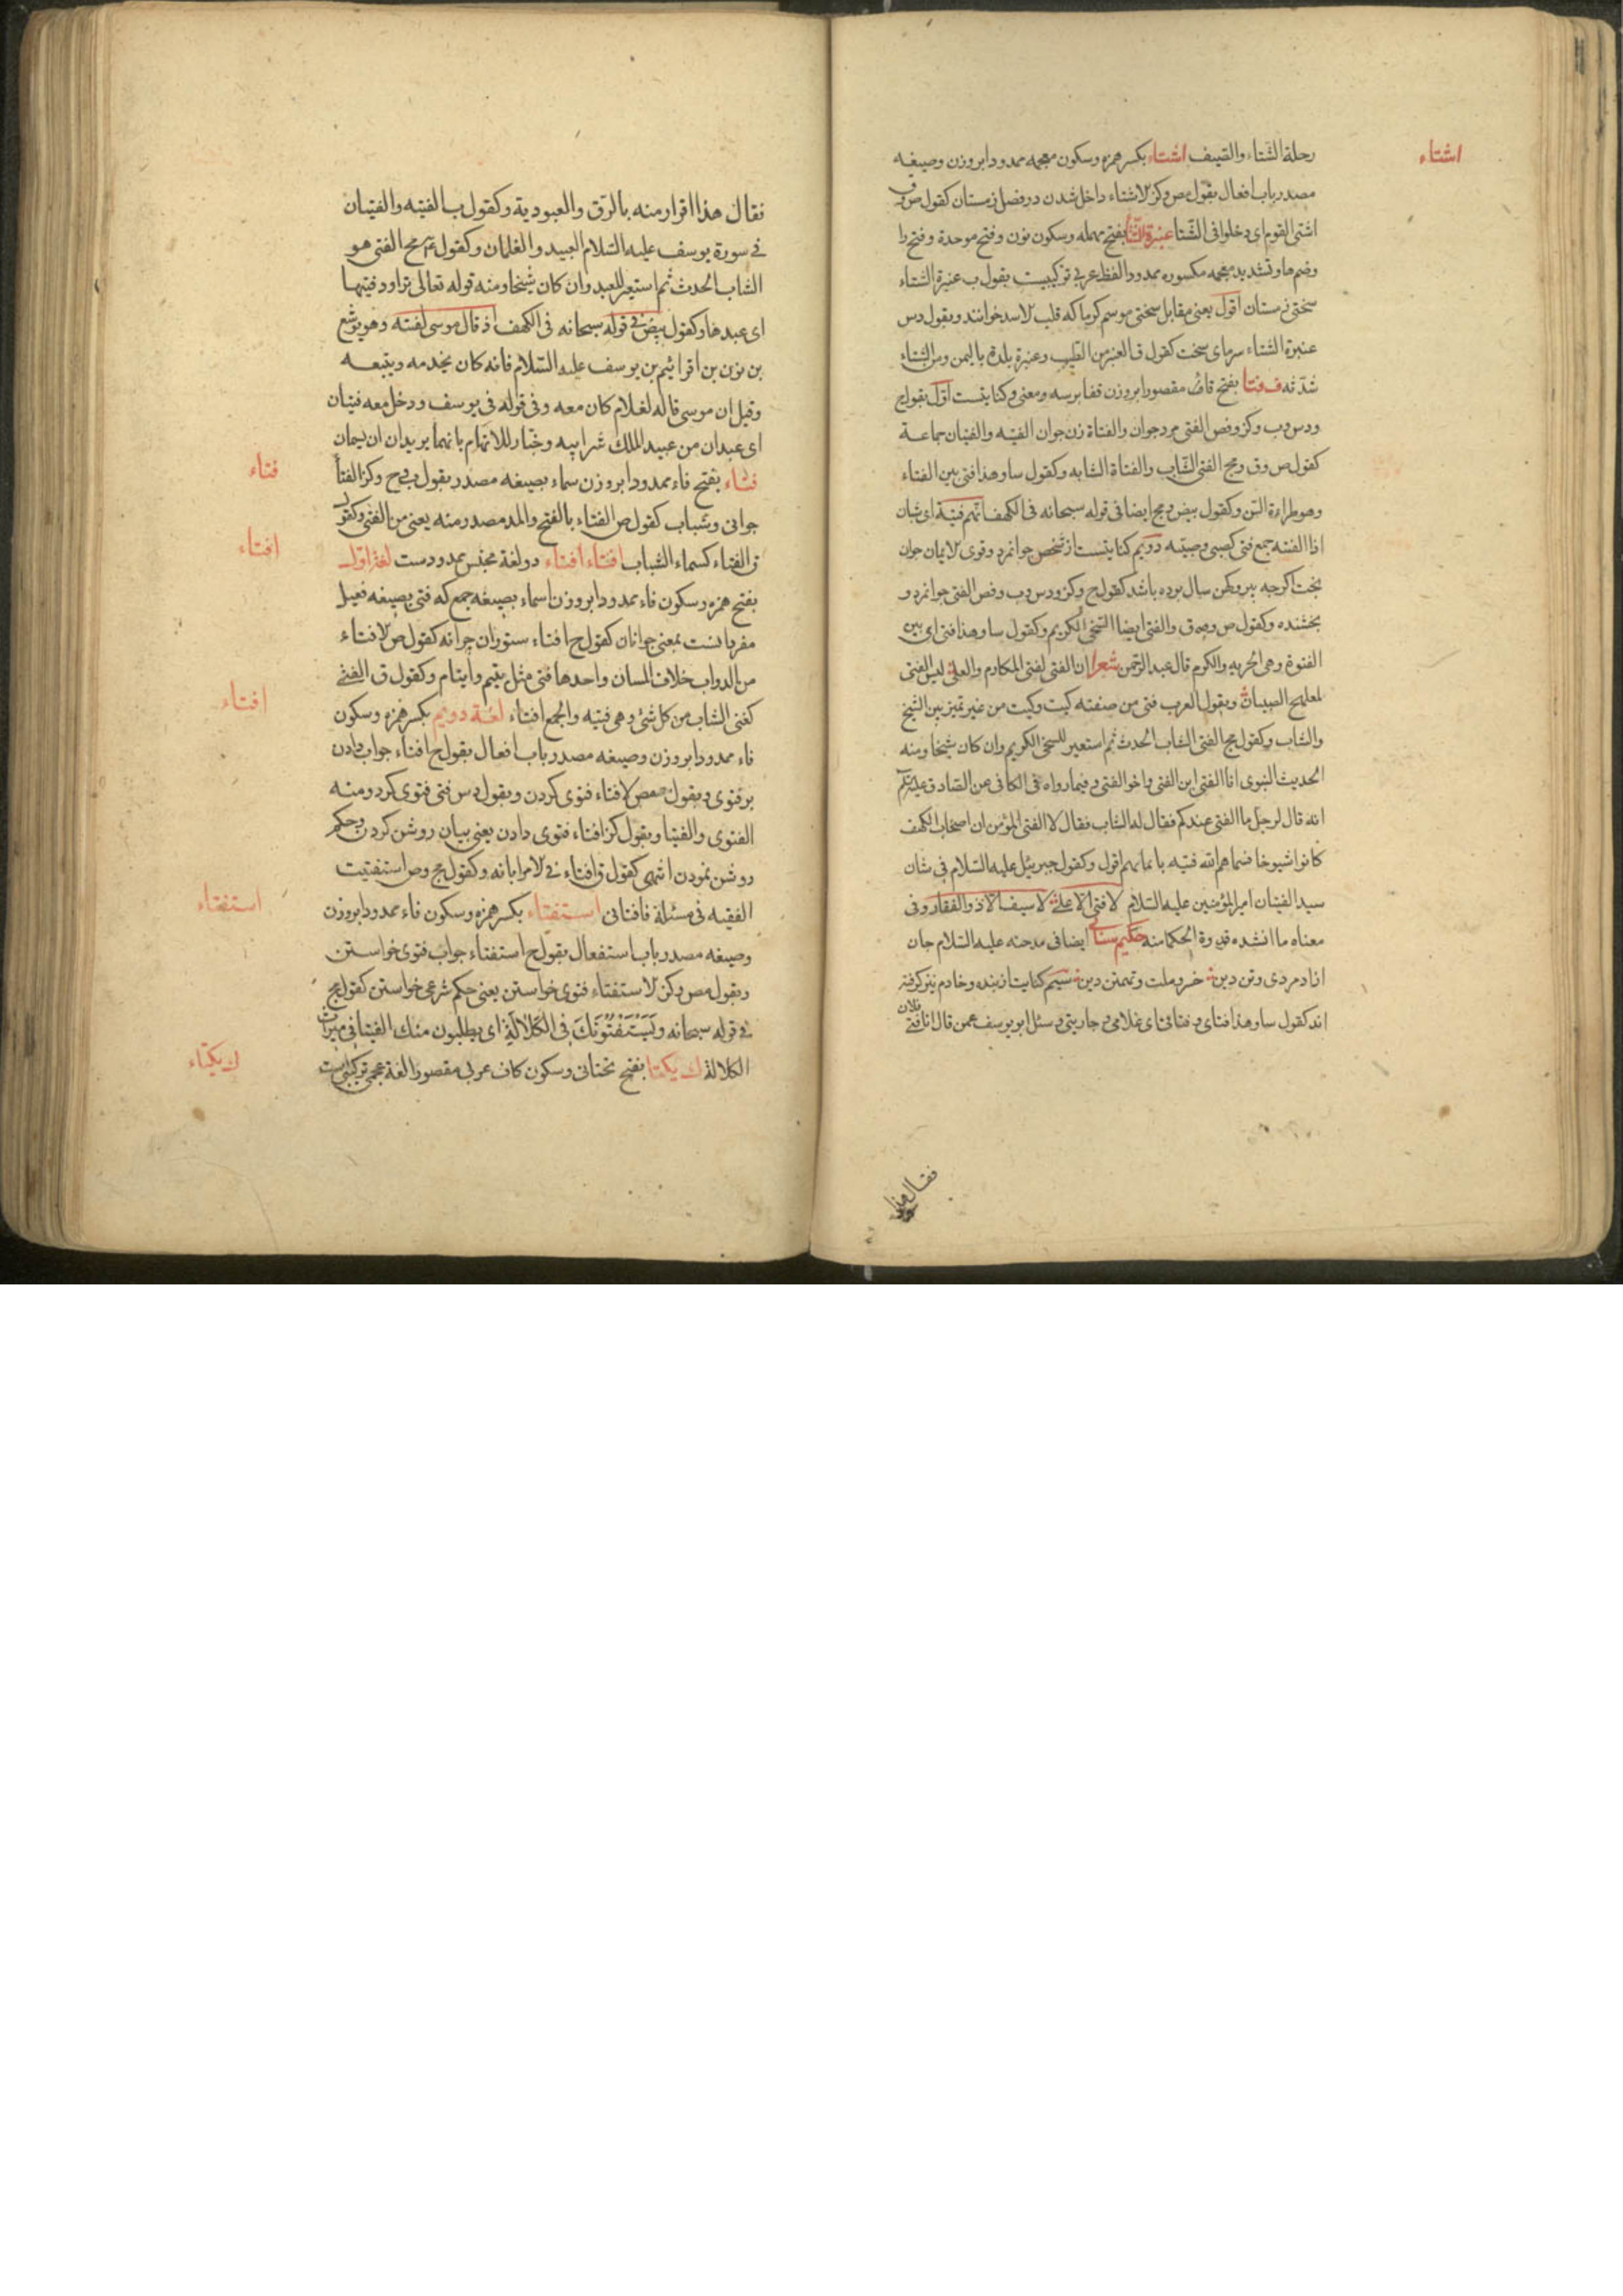 اشتاء
رحلة الشتاء والصیف اشتاء بکسر همزه وسکون معجمه ممدودا بروزن وصیغه
مصدر باب افعال بقول ص وکز الاشتاء داخل شدن در فصل زمستان کقول ص وق
اشتی القوم ای دخلوا فی الشتا عنبرة الشتا بفتح مهمله وسکون نون وفتح موحدة وفتح را
وضم ها وتشدید معجمه مکسوره ممدودا لفظ عربی ترکیبیست بقول ب عنبرة الشتاء
سختی زمستان اقول یعنی مقابل سختی موسم کرما که قلب الاسد خوانند وبقول دس
عنبرة الشتاء سرمای سخت کقول ق العنبر من القلیب وعنبرة بلدة بالیمن ومن الشتاء
شدته ف فتا بفتح فاء مقصورا بروزن قفا برسه ومعنی وکنایتست اول بقول ح
ودس وب وکز وفص الفتی مرد جوان والفتاة زن جوان الفتیه والفتیان جماعة
کقول ص وق ومج الفتی الشاب والفتاة الشابه وکقول سا وهذا فتی بین الفتاء
وهو طراءة السن وکقول بیض ومج ایضا فی قوله سبحانه فی الکهف انهم فتیة ای شبان
اذا الفتیه جمع فتی کصبی وصبیه دویم کنایتست از شخص جوانمرد وقوی الایمان جوان
بخت اکرچه پیر وکهن سال بوده باشد کقول ح وکز ودس وب وفص الفتی جوانمرد و
بخشنده وکقول ص ومج وق والفتی ایضا السخی الکریم وکقول سا وهذا فتی ای بین
الفتوة وهی الحریه والکرم قال عبد الرحمن شعر ان الفتی لفتی المکارم والعلی لیس الفتی
لمعلهج الصبیان ویقول العرب فتی من صفته کیت وکیت من غیر تمیز بین الشیخ
والشاب وکقول مج الفتی الشاب الحدث ثم استعیر للسخی الکریم وان کان شیخا ومنه
الحدیث النبوی انا الفتی ابن الفتی واخو الفتی وفیما رواه فی الکافی عن الصادق علیه
انه قال لرجل ما الفتی عندکم فقال له الشاب فقال لا الفتی المؤمن ان اصحاب الکهف
کانوا شیوخا فسماهم الله فتیه بایمانهم اقول وکقول جبرئیل علیه السلام فی شان
سید الفتیان امیر المؤمنین علیه السلام لا فتی الا علی لا سیف الا ذو الفقار وفی
معناه ما انشده قدوة الحکما منه حکیم سنائی ایضا فی مدحته علیه السلام جان
ازاد مردی وتن دین خسرو ملت وتهمتن دین سیم کنایت از بنده وخادم نیز کرفته
اند کقول سا وهذا فتای وفتاتی ای غلامی وجاریتی وسئل ابو یوسف عمن قال انا فتی فلان
فقال هذا
فقال هذا اقرار منه بالرق والعبودیة وکقول ب الفتیه والفتیان
فی سورة یوسف علیه السلام العبید والغلمان وکقول مج الفتی هو
الشاب الحدث ثم استعیر للعبد وان کان شیخا ومنه قوله تعالی تراود فتیها
ای عبدها وکقول بیض فی قوله سبحانه فی الکهف اذ قال موسی لفتیه وهو یوشع
بن نون بن افرائیم بن یوسف علیه السلام فانه کان یخدمه ویتبعه
وقیل ان موسی قاله لغلام کان معه وفی قوله فی یوسف ودخل معه فتیان
ای عبدان من عبید الملک شرابیه وخباز للاتهام بانهما یریدان ان یسمان
فتاء
فتاء بفتح فاء ممدودا بروزن سماء بصیغه مصدر بقول ب وح وکز الفتا
جوانی وشباب کقول ص الفتاء بالفتح والمد مصدر منه یعنی من الفتی وکقول
افتاء
ق الفتاء کسماء الشباب افتاء افتاء دو لغة مجنس ممدودست لغة اول
بفتح همزه وسکون فاء ممدودا بروزن اسماء بصیغه جمع که فتی بصیغه فعیل
مفرد انست بمعنی جوانان کقول ح افتاء ستوران جوانه کقول ص الافتاء
من الدواب خلاف المسان واحدها فتی مثل یتیم وایتام وکقول ق الفتی
افتاء
کغنی الشاب من کل شئ وهی فتیه والجمع افتاء لغة دویم بکسر همزه وسکون
فاء ممدودا بروزن وصیغه مصدر باب افعال بقول ح افتاء جواب دادن
بر فتوی وبقول ص الافتاء فتوی کردن وبقول دس فتی فتوی کرد ومنه
الفتوی والفتیا وبقول کز افتاء فتوی دادن یعنی بیان روشن کردن وحکم
روشن نمودن انتهی کقول ق افتاء فی الامر ابانه وکقول مج وص استفتیت
استفتاء
الفقیه فی مسئلة فافتانی استفتاء بکسر همزه وسکون فاء ممدودا بروزن
وصیغه مصدر باب استفعال بقول ح استفتاء جواب فتوی خواستن
وبقول ص وکز الاستفتاء فتوی خواستن یعنی حکم شرعی خواستن کقول مج
فی قوله سبحانه وَیَسْتَفْتُونَکَ فی الکَلالَةِ ای یطلبون منک الفتیا فی میراث
ک یکتاء
الکلالة ک یکتا بفتح تحتانی وسکون کاف عربی مقصورا لغة عجمی ترکیبی است